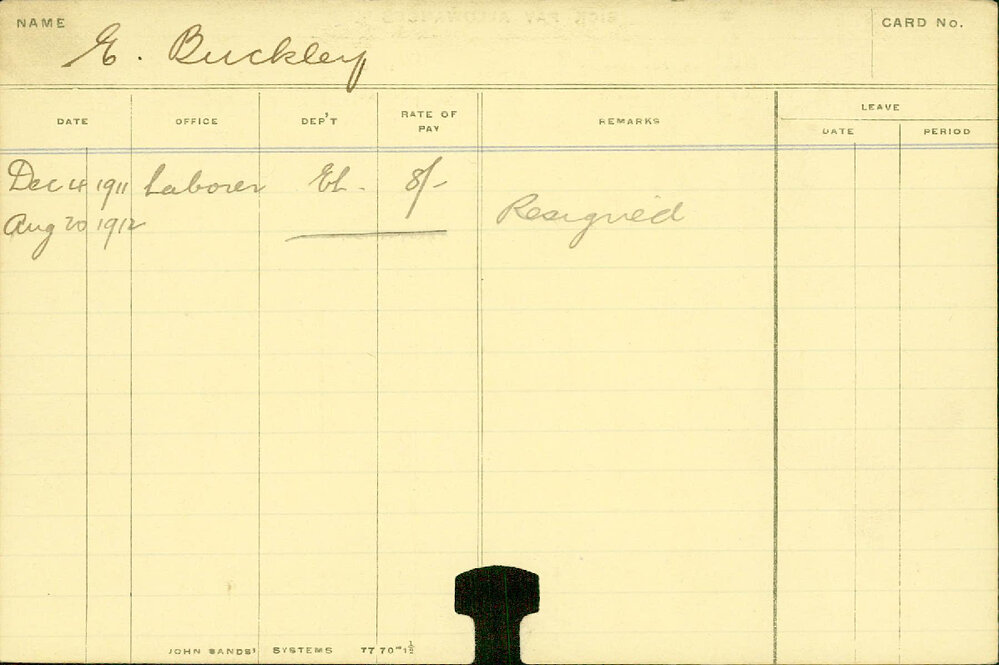 NAME E. Buckley CARD No.
DATE OFFICE DEP'T RATE OF PAY REMARKS LEAVE
DATE PERIOD
Dec 4 1911 Laborer EL. 8/-
Aug 20 1912 Resigned
JOHN SANDS' SYSTEMS 77 70 "1½